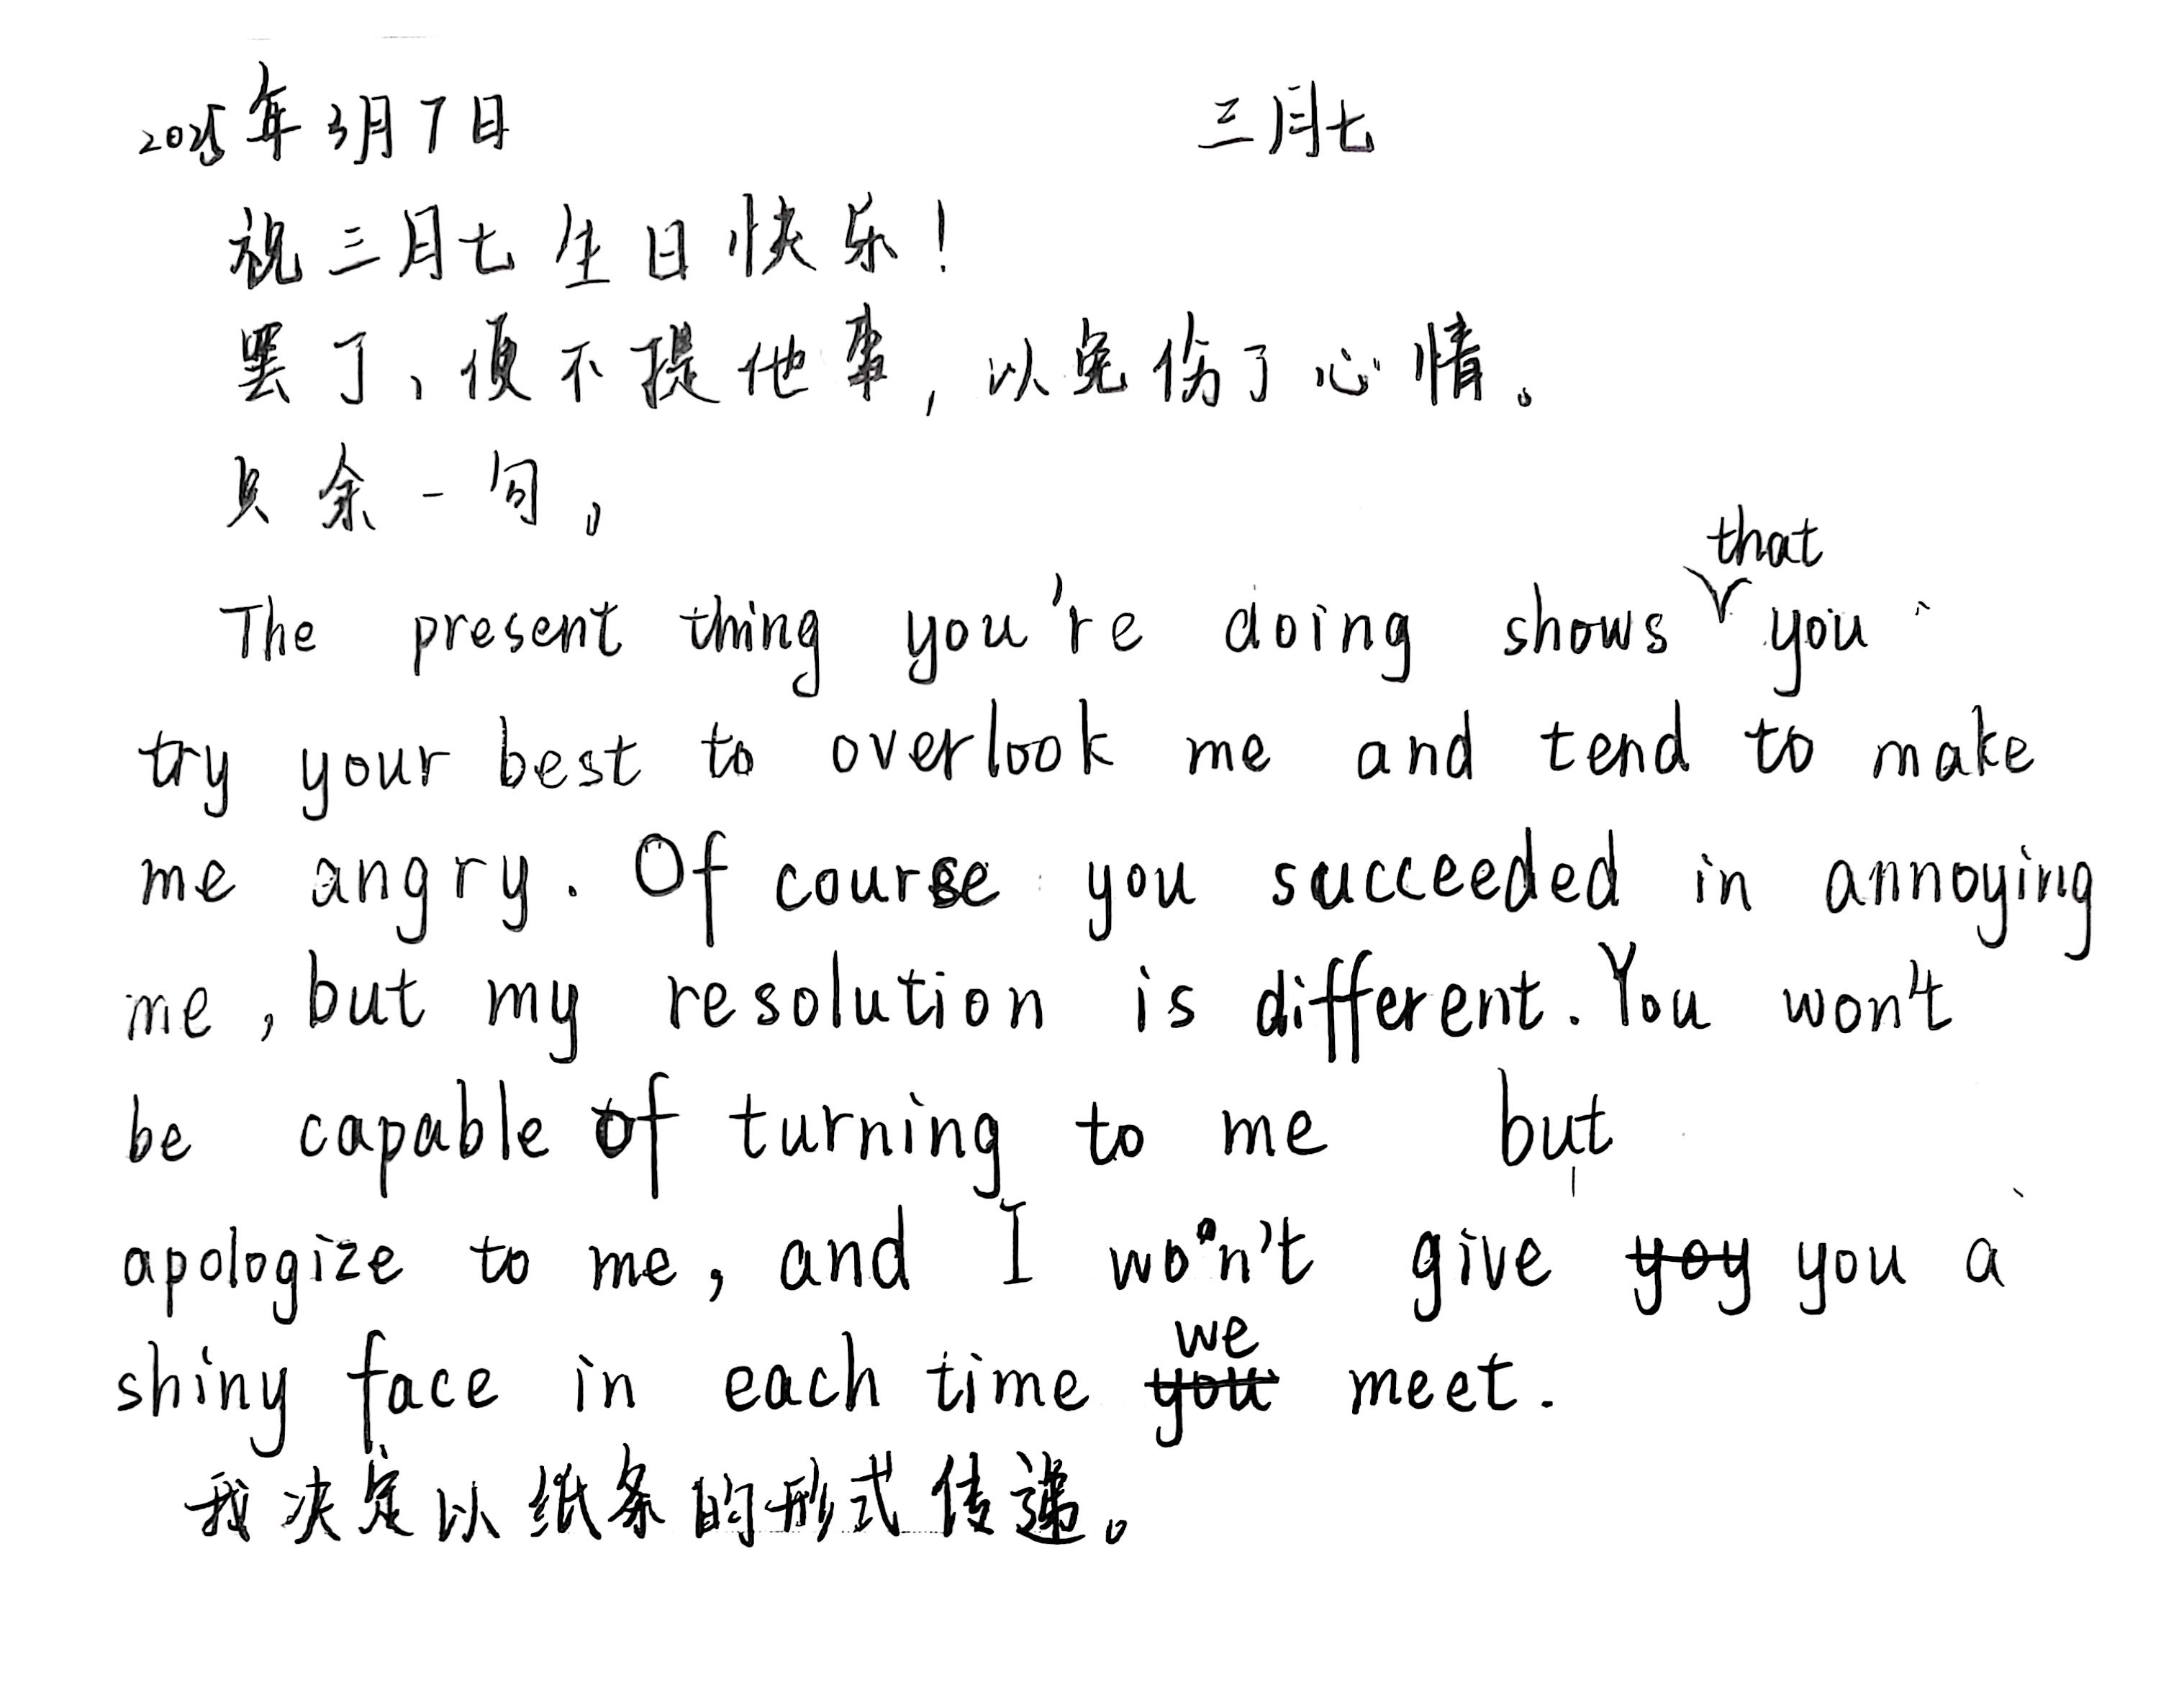 2025年3月7日 三月七
祝三月七生日快乐！
罢了，便不提他事，以免伤了心情。
只余一句。
The present thing you're doing shows that you
try your best to overlook me and tend to make
me angry. Of course you succeeded in annoying
me, but my resolution is different. You won't
be capable of turning to me but
apologize to me, and I won't give yoy you a
shiny face in each time you we meet.
我决定以纸条的形式传递。